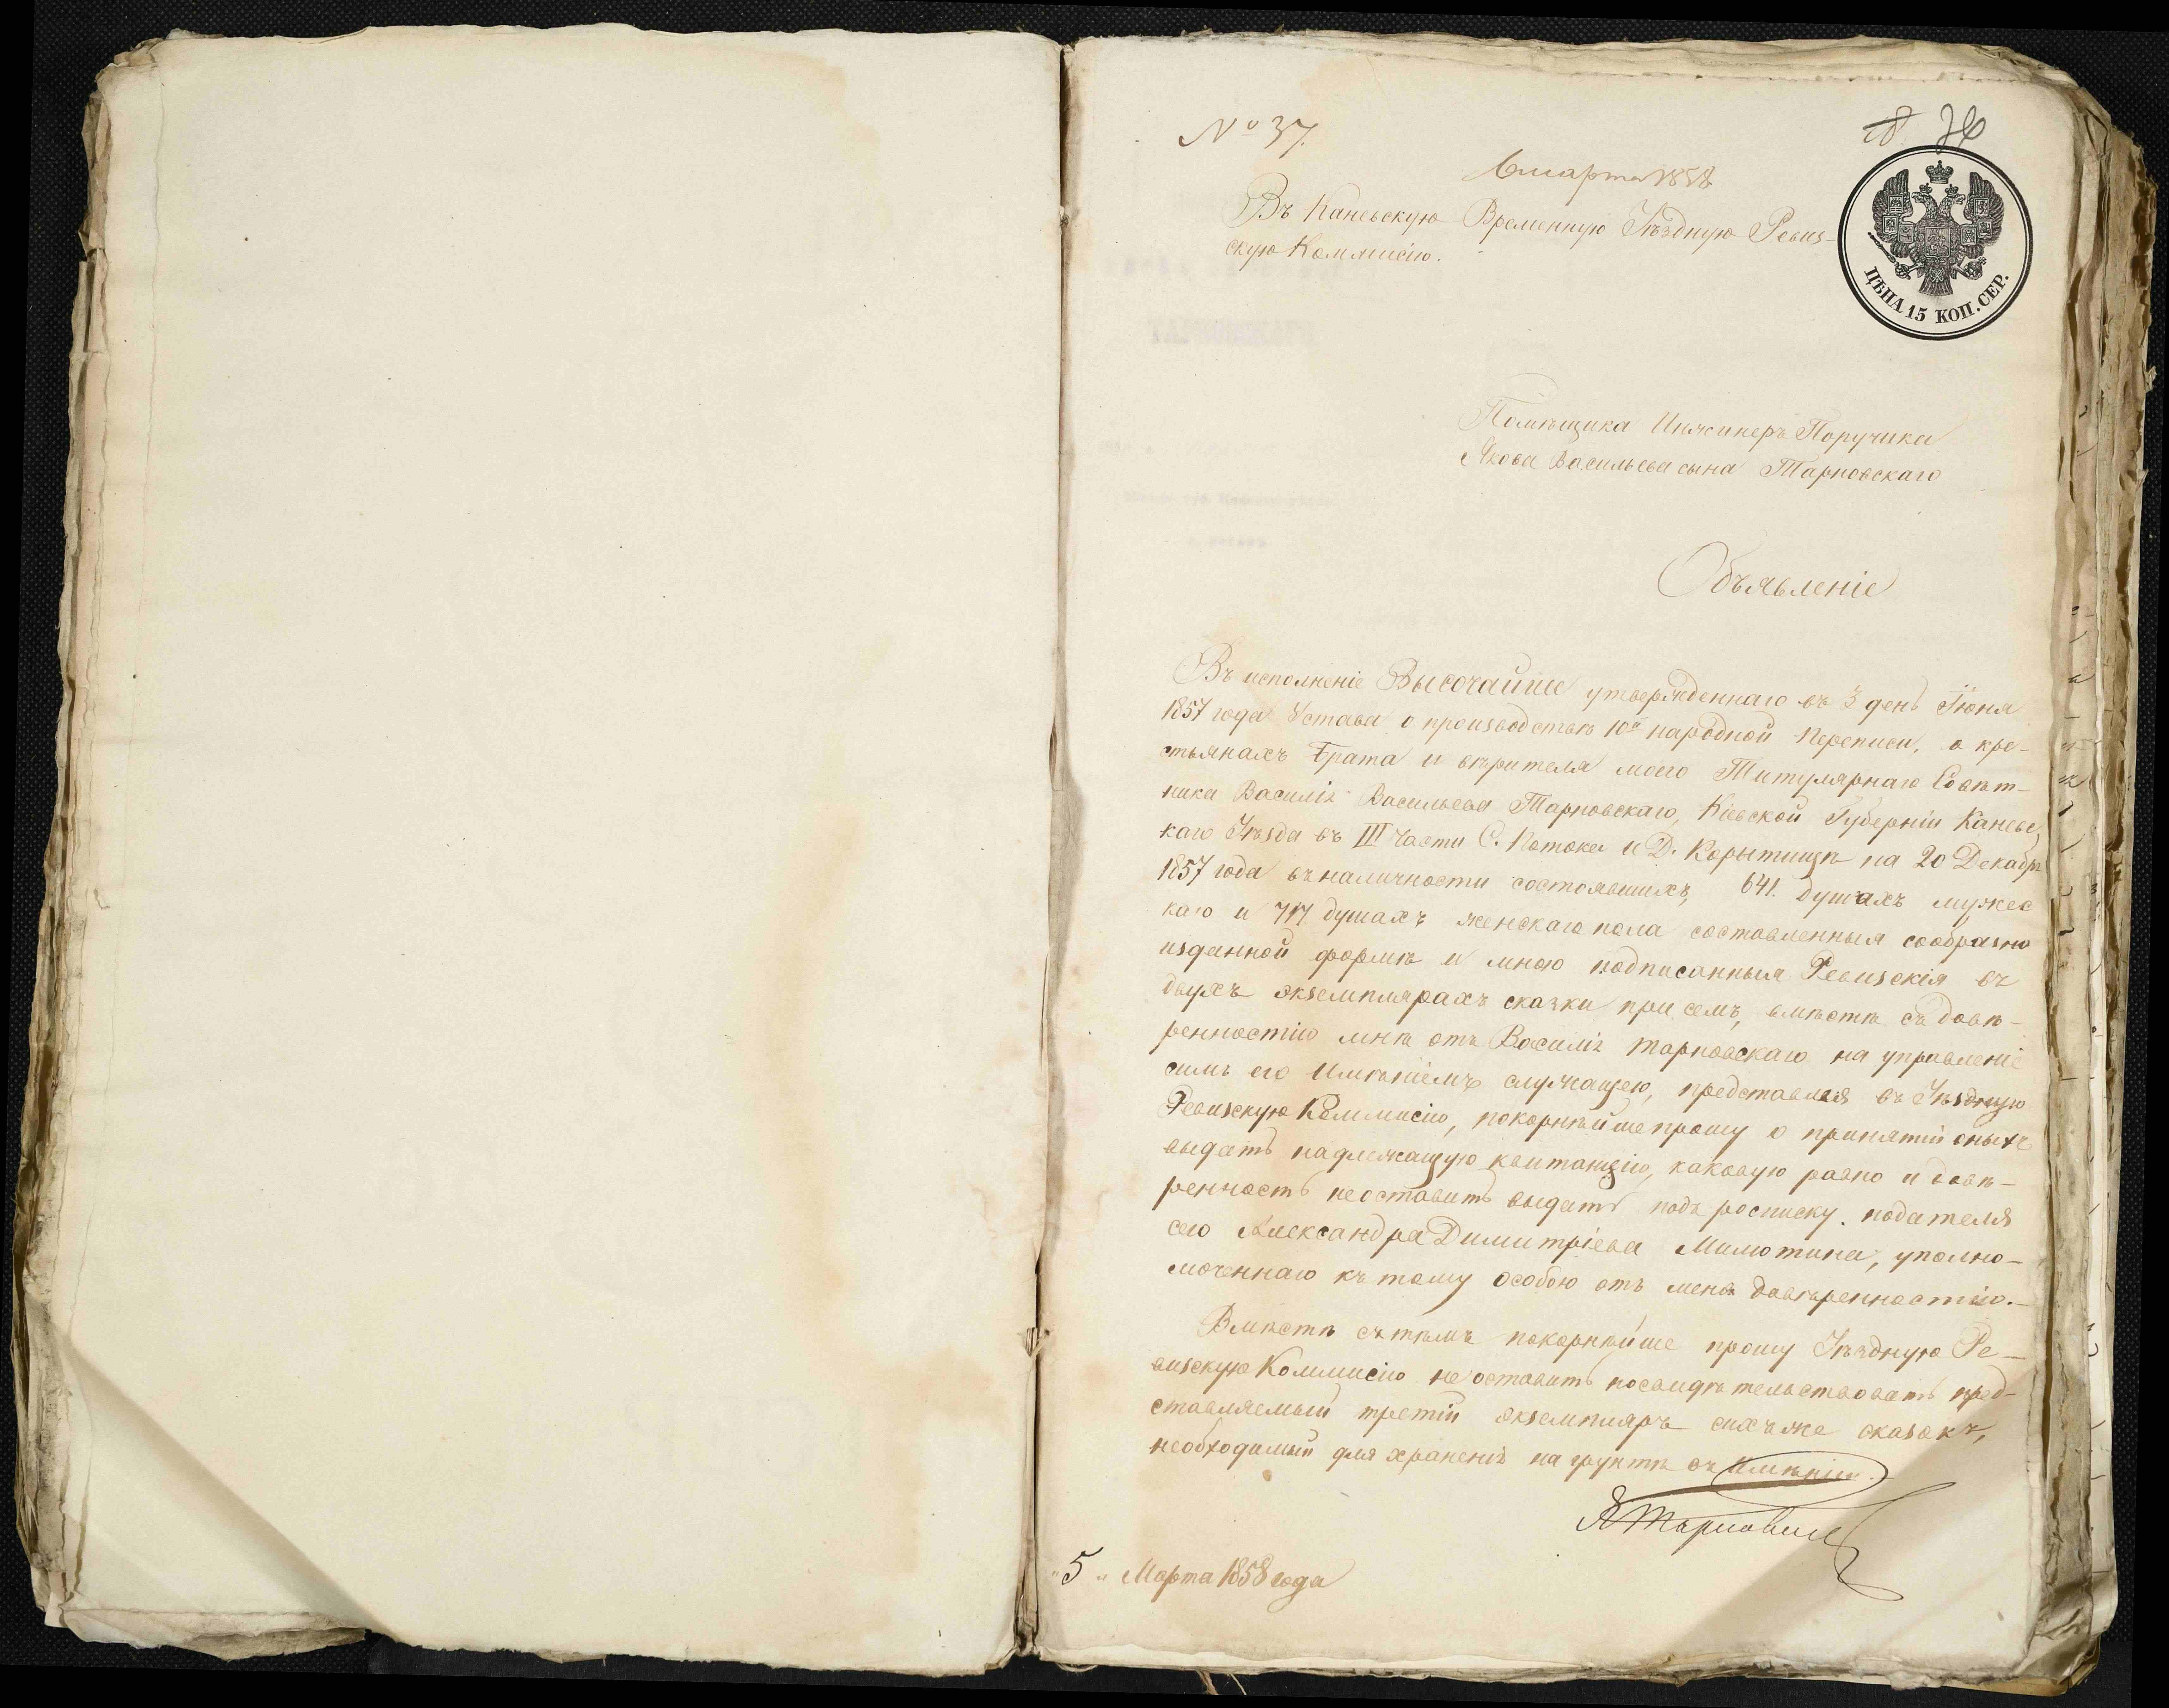 № 37.
6 марта 1858
Въ Каневскую Временную Уѣздную Ревиз-
скую Коммисію.
ЦѢНА 15 КОП. СЕР.
Помѣщика Инжинеръ Поручика
Якова Васильева сына Тарновскаго
Объявленіе
Въ исполненіе Высочайше утвержденнаго въ 3 день Іюня
1857 года Устава о производствѣ 10й народной переписи, о кре-
стьянахъ брата и вѣрителя моего Титулярнаго Совѣт-
ника Василія Васильева Тарновскаго, Кіевской Губерніи Каневс
каго Уѣзда въ III части С. Потока и Д. Корытищѣ на 20 Декабря
1857 года въ наличности состоявшихъ, 641. душахъ мужес
каго и 717 душахъ женскаго пола составленныя сообразно
изданной формѣ и мною подписанныя Ревизскія въ
двухъ экземплярахъ сказки при семъ, вмѣстѣ съ довѣ-
ренностію мнѣ отъ Василія Тарновскаго на управленіе
симъ его имѣніемъ служащею, представляя въ Уѣздную
Ревизскую Коммисію, покорнѣйше прошу о принятіи оныхъ
выдать надлежащую квитанцію, каковую равно и довѣ-
ренность неоставить выдать подъ росписку подателя
сего Александра Димитріева Милютина, уполно-
моченнаго къ тому особою отъ меня довѣренностію.—
Вмѣстѣ съ тѣмъ покорнѣйше прошу Уѣздную Ре-
визскую Коммисію не оставить посвидѣтельствовать пред-
ставляемый третій экземпляръ сихъ же сказокъ,
необходимый для храненія на грунтѣ въ имѣніи.
Я Тарновскій
"5" Марта 1858 года